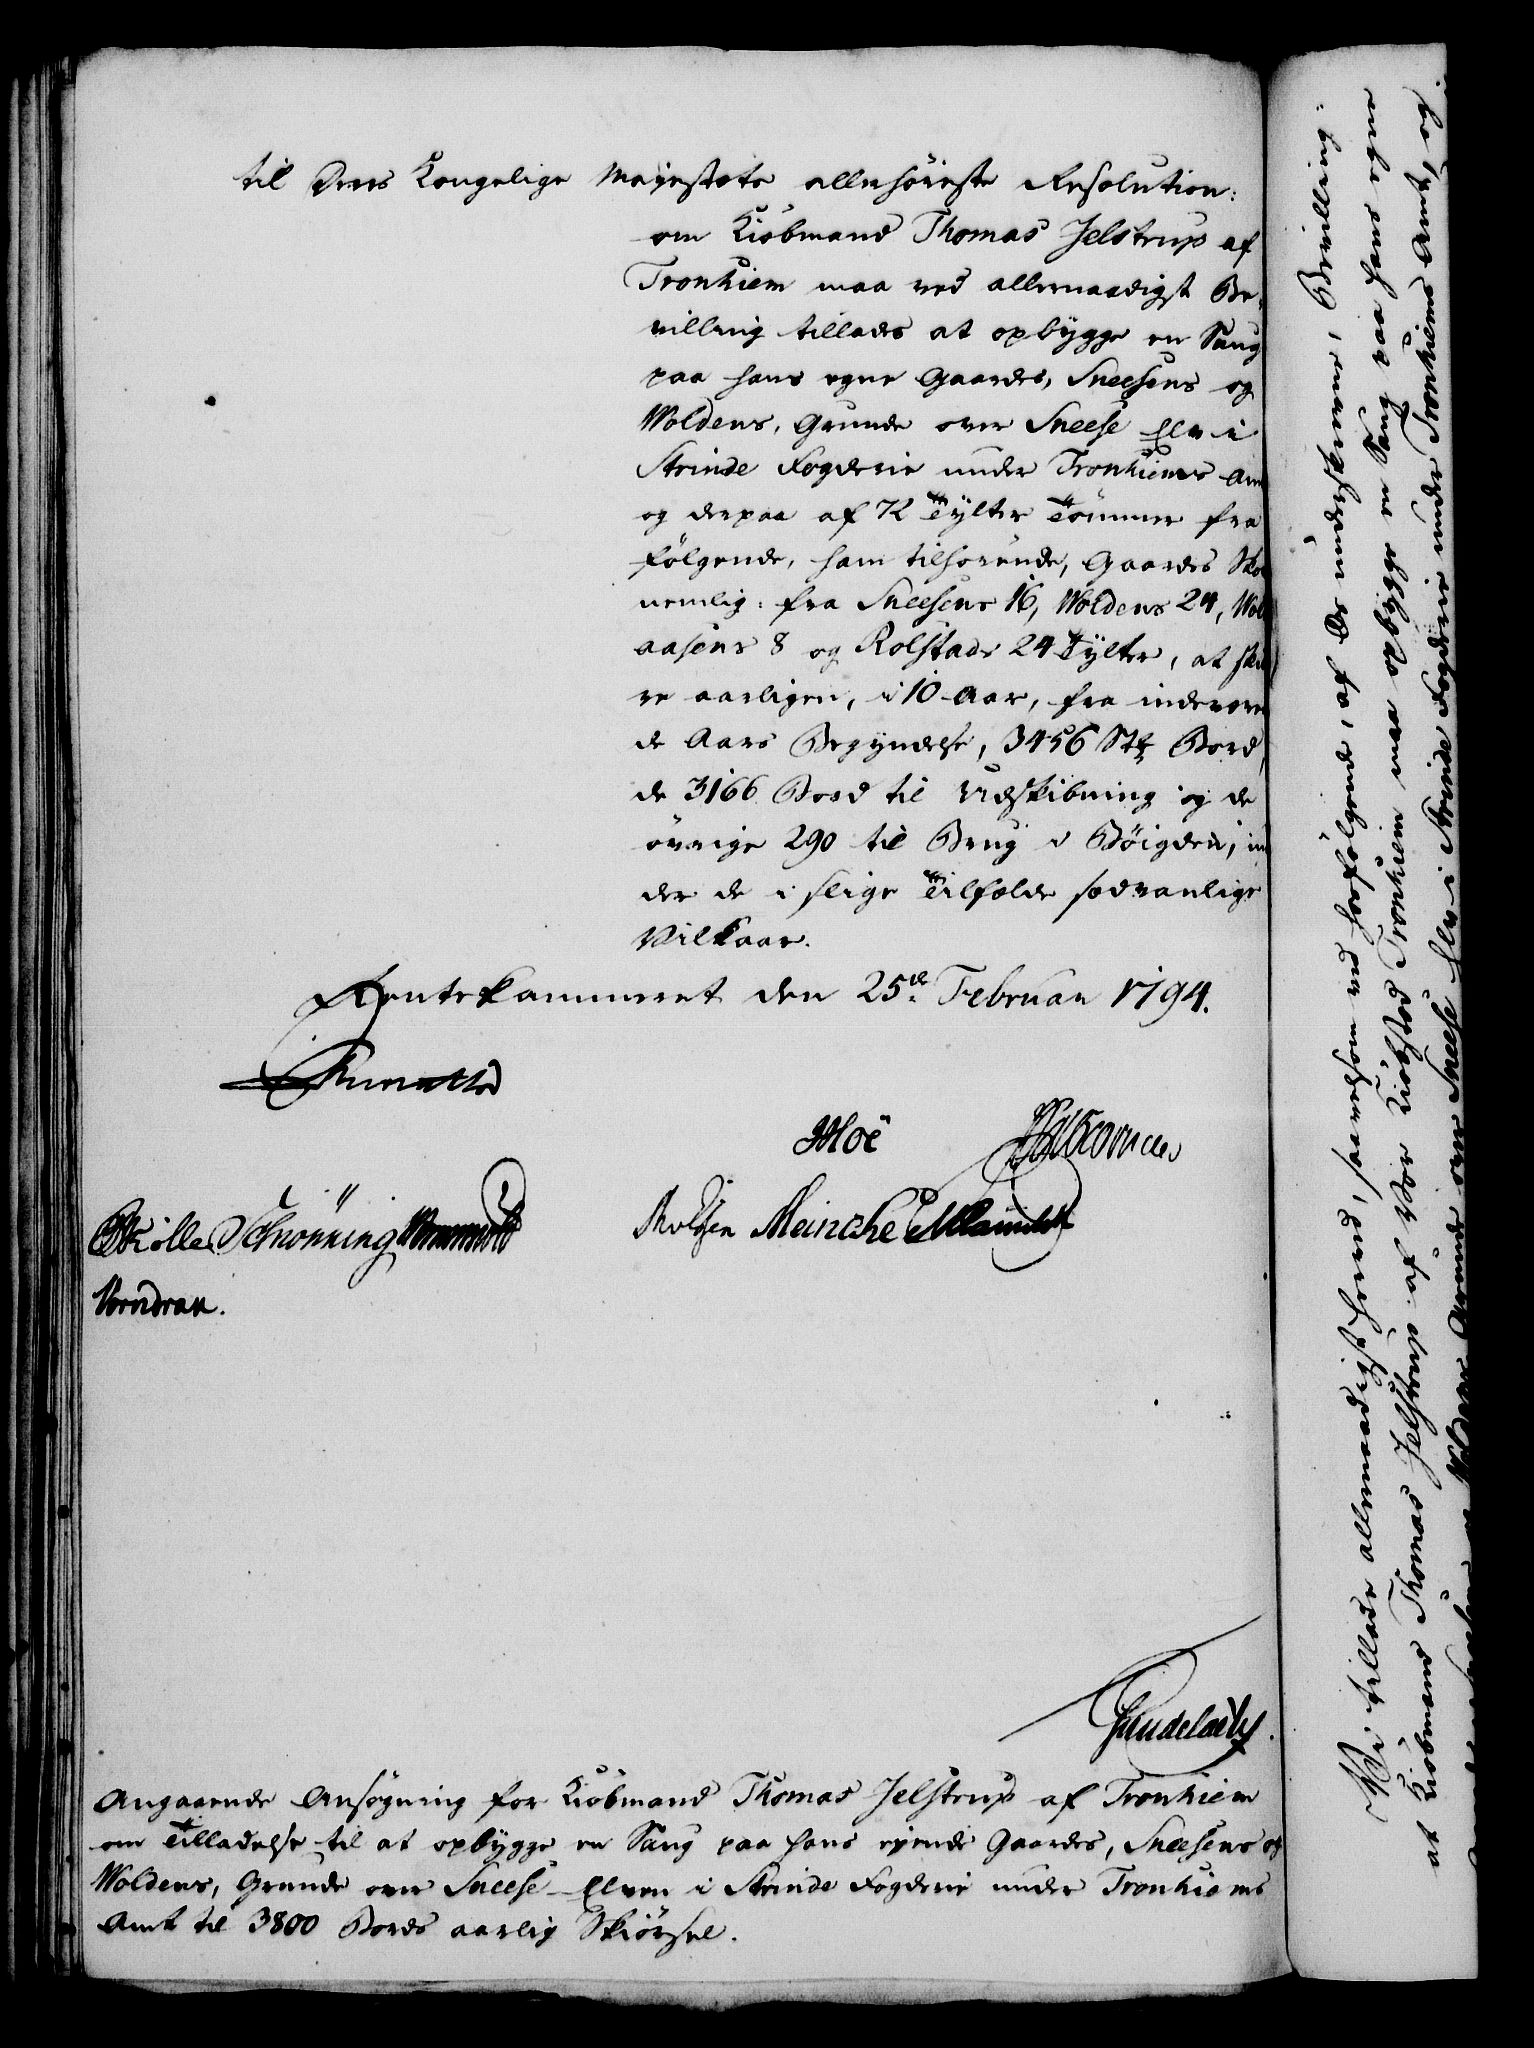 til Deres Kongelige Majestæts allerhöieste Resolution:
om Kiöbmand Thomas Jelstrup af
Tronhiem maa ved allernaadigst Be-
villing tillades at opbÿgge en Saug
paa hans egne Gaardes, Sneesens og
Woldens, Grunde over Sneese Elv i
Strinde Fogderie under Tronhiems Amt
og derpaa af 72 Tÿlter Tömmer fra
fölgende, ham tilhörende, Gaardes Sko
nemlig: fra Sneesens 16, Woldens 24, Wol
aasens 8 og Rolstads 24 Tÿlter, at skiæ
re aarligen, i 10 Aar, fra indeværen
de Aars Begÿndelse, 3456 Stk Bord,
de 3166 Bord til Udskibning og de
övrige 290 til Brug i Böigden, un
der de i slige Tilfælde sædvanlige
Vilkaar.
Rentekammeret den 25de Februar 1794.
Moë
Skilling Schrönning
Meincke
Vorndran.
Gundelach
Angaaende Ansögning for Kiöbmand Thomas Jelstrup af Tronhiem
om Tilladelse til at opbÿgge en Saug paa hans ejende Gaardes, Sneesens og
Woldens, Grunde over Sneese-Elven i Strinde Fogderie under Tronhiems
Amt til 3800 Bords aarlig Skiörsel.
Vi tillade allernaadigst herved, saavelsom ved hosfölgende, af Os underskrevne, Bevilling:
at Kiöbmand Thomas Jelstrup af Vor Kiöbstad Tronhiem maa opbÿgge en Saug paa hans egne
Gaardes, Sneesens og Woldens Grunde over Sneese Elv i Strinde Fogderie under Tronhiems Amt, og